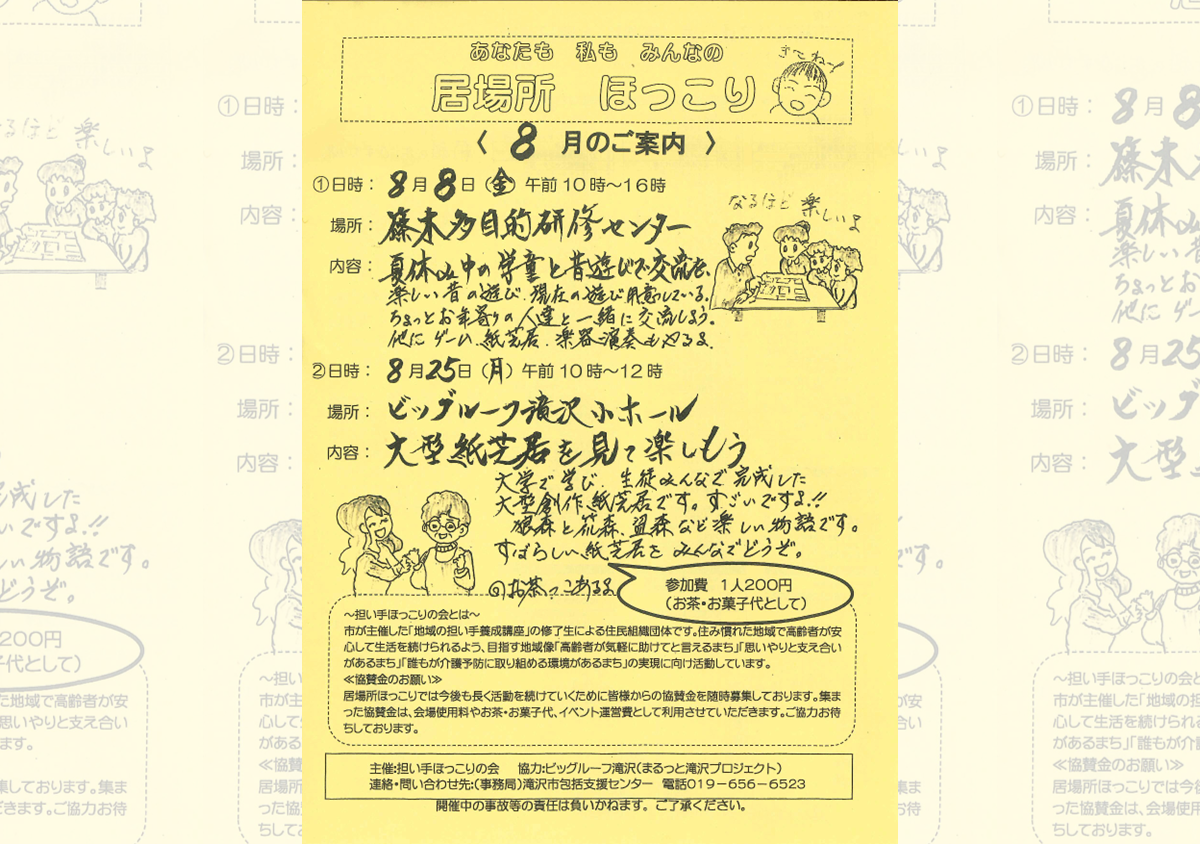 あなたも 私も みんなの
居場所 ほっこり
きてね〜
〈 8 月のご案内 〉
①日時： 8月8日（金）午前10時〜16時
場所： 篠木多目的研修センター
なるほど 楽しいよ
内容： 夏休み中の学童と昔遊びで交流を、
楽しい昔の遊び、現在の遊び用意している。
ちょっとお年寄りの人達と一緒に交流しよう。
他にゲーム、紙芝居、楽器演奏もやるよ、
②日時： 8月25日（月）午前10時〜12時
場所： ビッグルーフ滝沢小ホール
内容： 大型紙芝居を見て楽しもう
大学で学び、生徒みんなで完成した
大型創作紙芝居です。すごいですよ!!
狼森と笊森、盗森など楽しい物語です。
すばらしい紙芝居をみんなでどうぞ。
◎お茶っこあるよ
参加費 1人200円
（お茶・お菓子代として）
〜担い手ほっこりの会とは〜
市が主催した「地域の担い手養成講座」の修了生による住民組織団体です。住み慣れた地域で高齢者が安
心して生活を続けられるよう、目指す地域像「高齢者が気軽に助けてと言えるまち」「思いやりと支え合い
があるまち」「誰もが介護予防に取り組める環境があるまち」の実現に向け活動しています。
≪協賛金のお願い≫
居場所ほっこりでは今後も長く活動を続けていくために皆様からの協賛金を随時募集しております。集ま
った協賛金は、会場使用料やお茶・お菓子代、イベント運営費として利用させていただきます。ご協力お待
ちしております。
主催:担い手ほっこりの会 協力:ビッグルーフ滝沢（まるっと滝沢プロジェクト）
連絡・問い合わせ先:（事務局）滝沢市包括支援センター 電話019－656－6523
開催中の事故等の責任は負いかねます。ご了承ください。